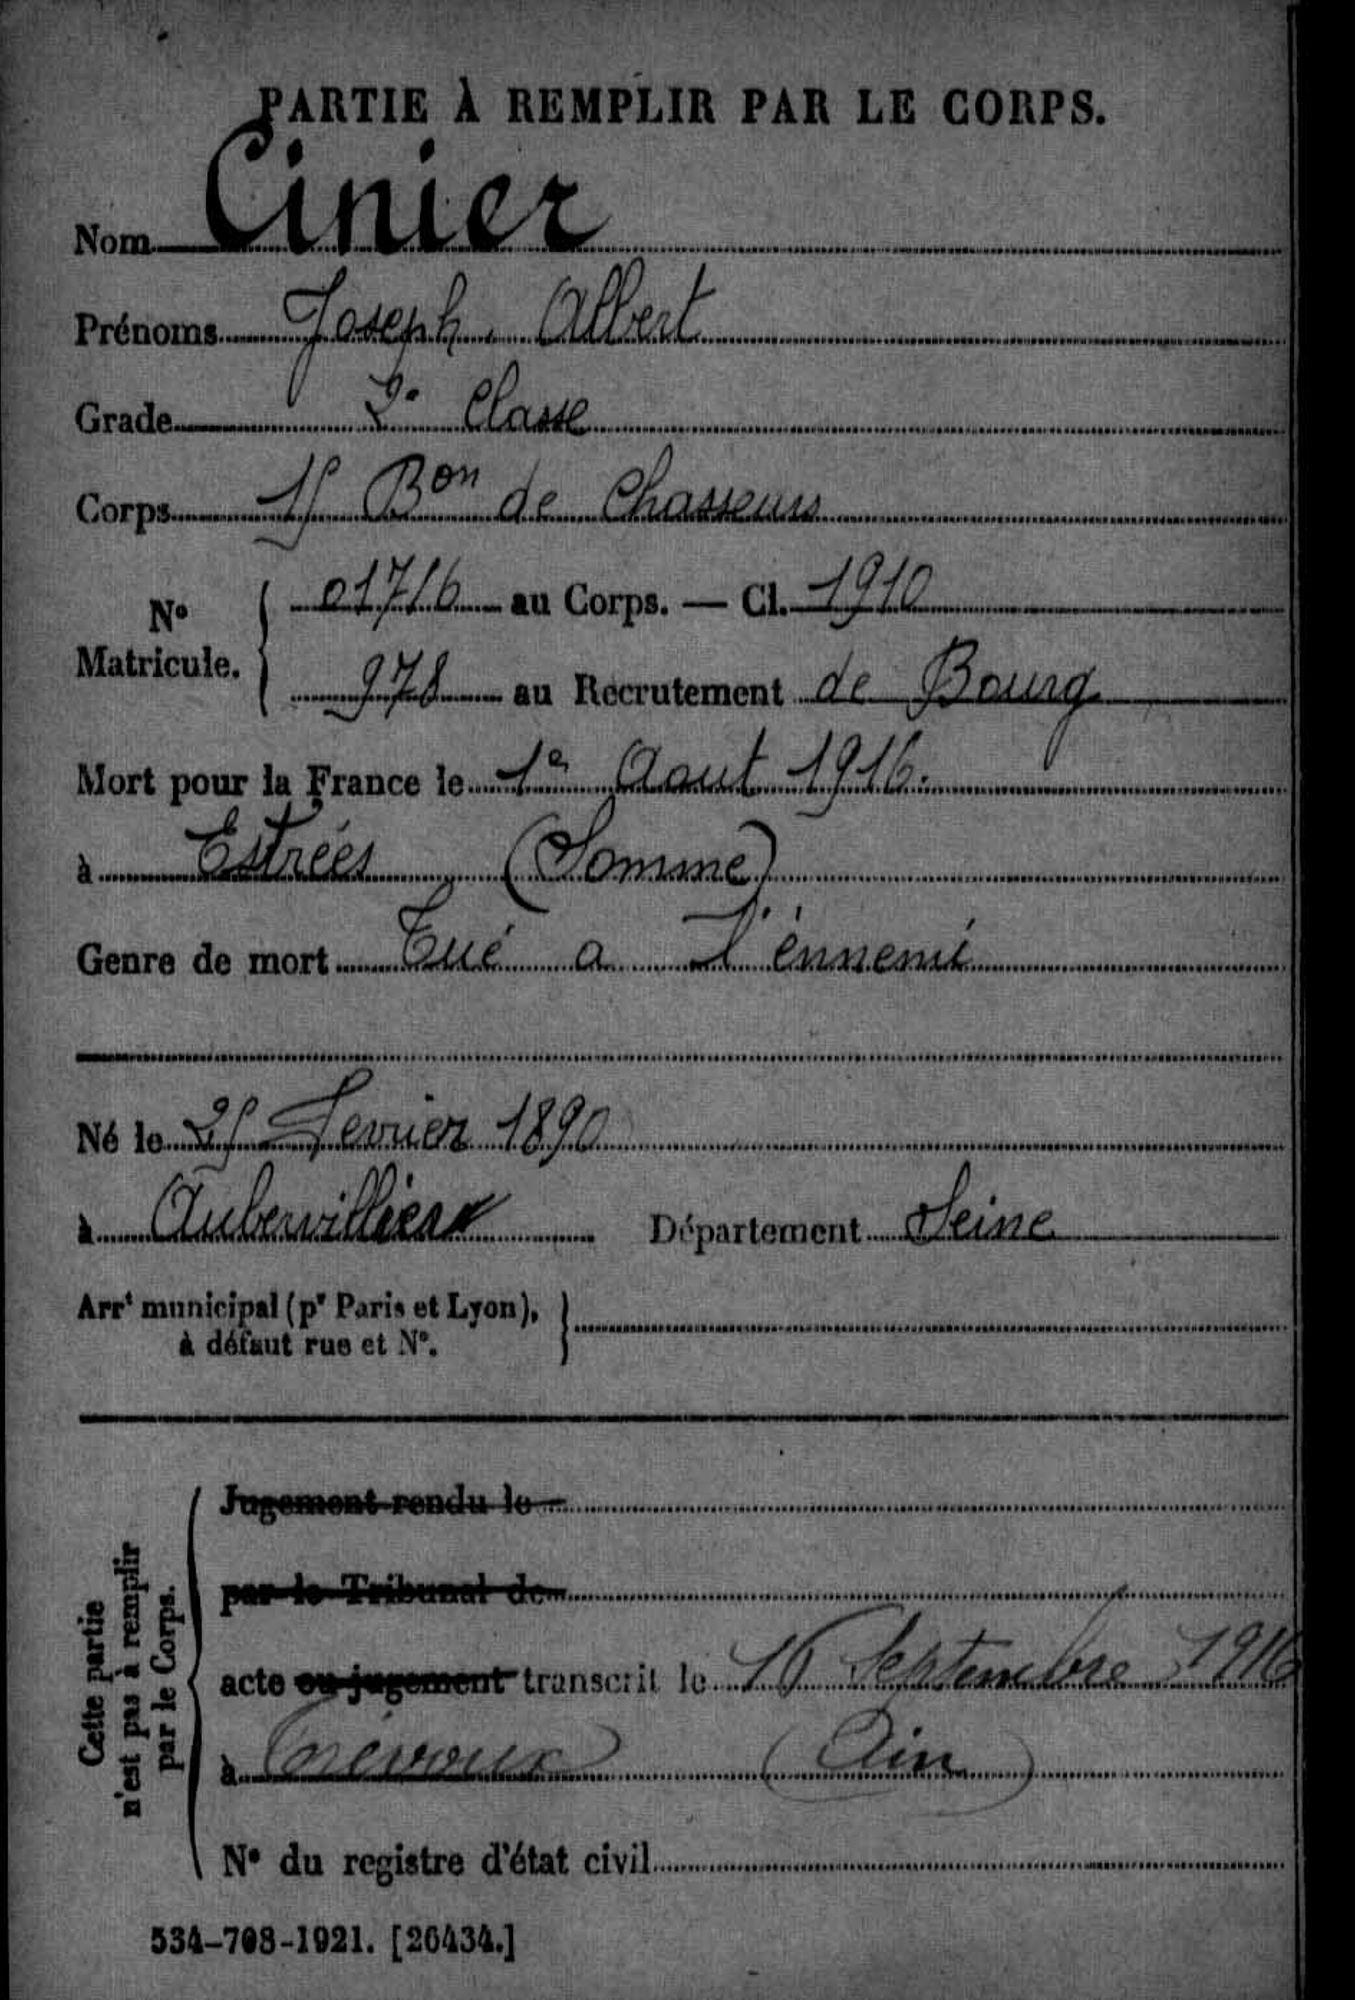 PARTIE À REMPLIR PAR LE CORPS.
Nom Cinier
Prénoms Joseph Albert
Grade 2e Classe
Corps 15 Bon de Chasseurs
No Matricule. 01716 au Corps. — Cl. 1910
978 au Recrutement de Bourg
Mort pour la France le 1e Aout 1916.
à Estrées (Somme)
Genre de mort Tué a l'énnemi
Né le 25 Fevrier 1890
à Aubervilliers Département Seine
Arrt municipal (pr Paris et Lyon),
à défaut rue et No.
Cette partie
n'est pas à remplir
par le Corps.
Jugement rendu le
par le Tribunal de
acte ou jugement transcrit le 16 Septembre 1916
à Trévoux (Ain)
No du registre d'état civil
534-708-1921. [26434.]